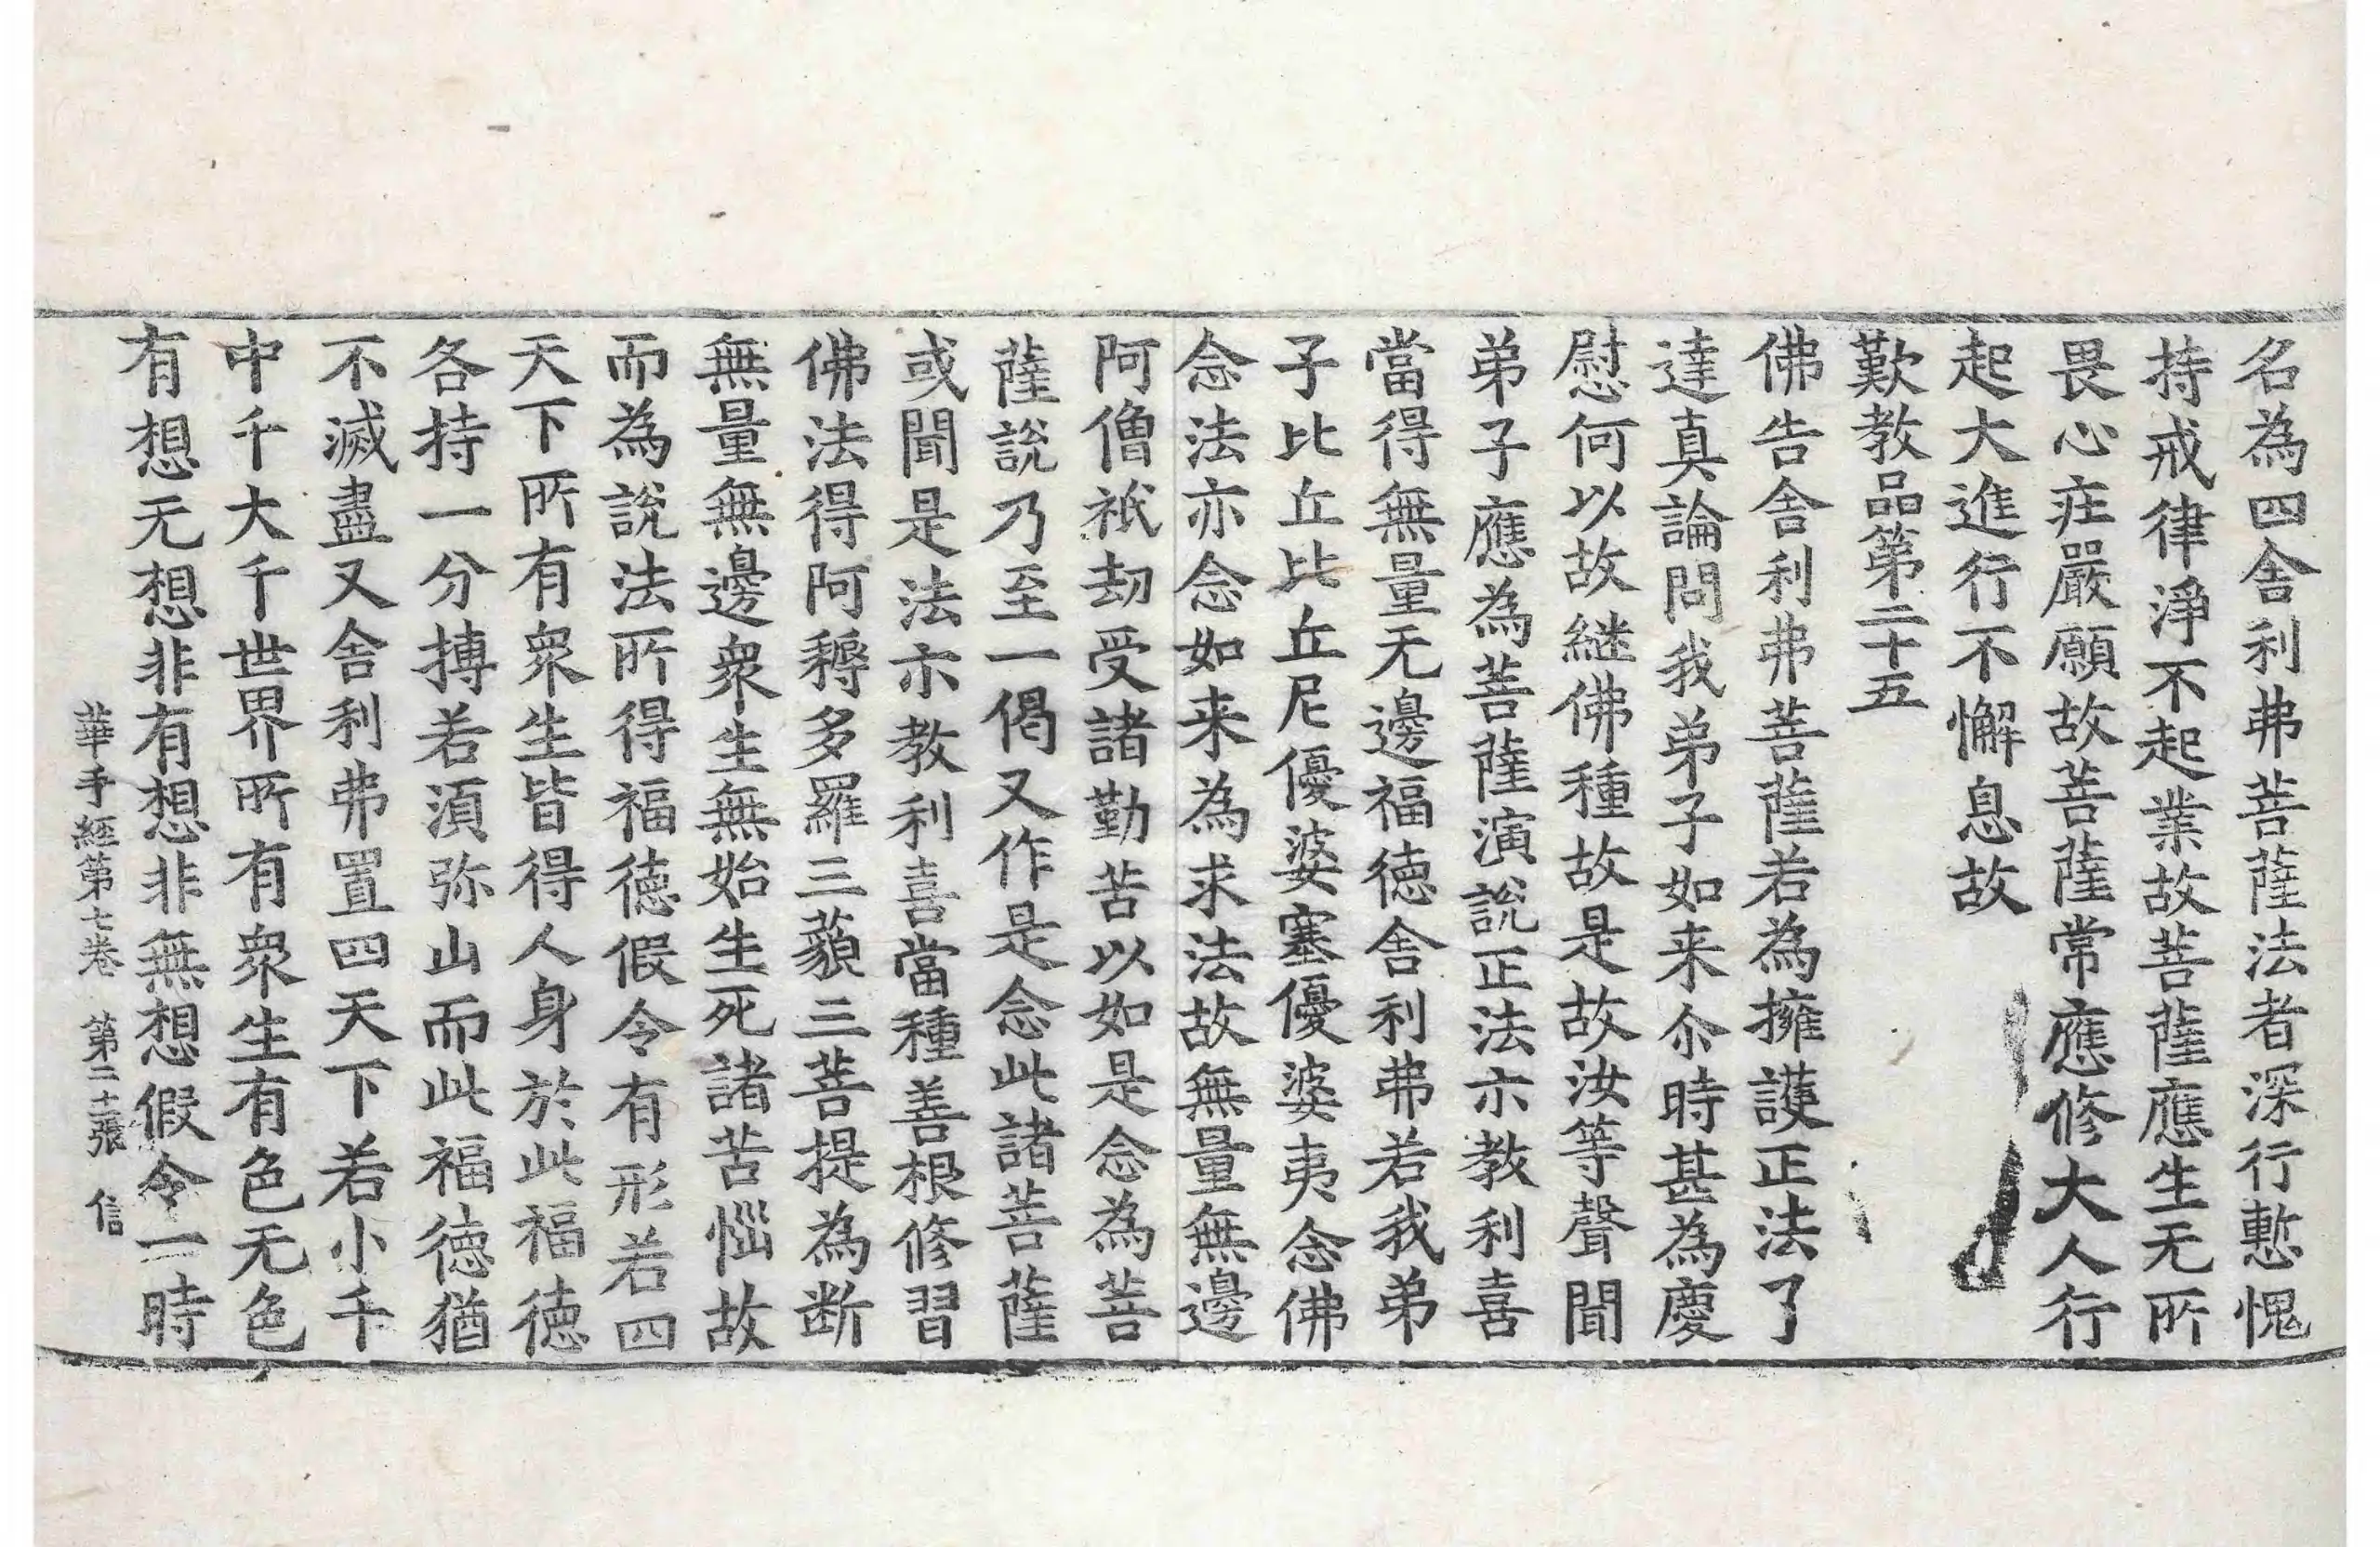 名為四舍利弗菩薩法者深行慙愧
持戒律淨不起業故菩薩應生无所
畏心疘嚴願故菩薩常應修大人行
起大進行不懈息故
歎教品第二十五
佛告舍利弗菩薩若為擁護正法了
達真論問我弟子如来尒時甚為慶
慰何以故継佛種故是故汝等聲聞
弟子應為菩薩演說正法示教利喜
當得無量无邊福德舍利弗若我弟
子比丘比丘尼優婆塞優婆夷念佛
念法亦念如来為求法故無量無邊
阿僧祇劫受諸勤苦以如是念為菩
薩說乃至一偈又作是念此諸菩薩
或聞是法示教利喜當種善根修習
佛法得阿耨多羅三藐三菩提為断
無量無邊衆生無始生死諸苦惱故
而為說法所得福德假令有形若四
天下所有衆生皆得人身於此福德
各持一分摶若湏弥山而此福德猶
不滅盡又舍利弗置四天下若小千
中千大千世界所有衆生有色无色
有想无想非有想非無想假令一時
華手經第七卷 第二十張 信